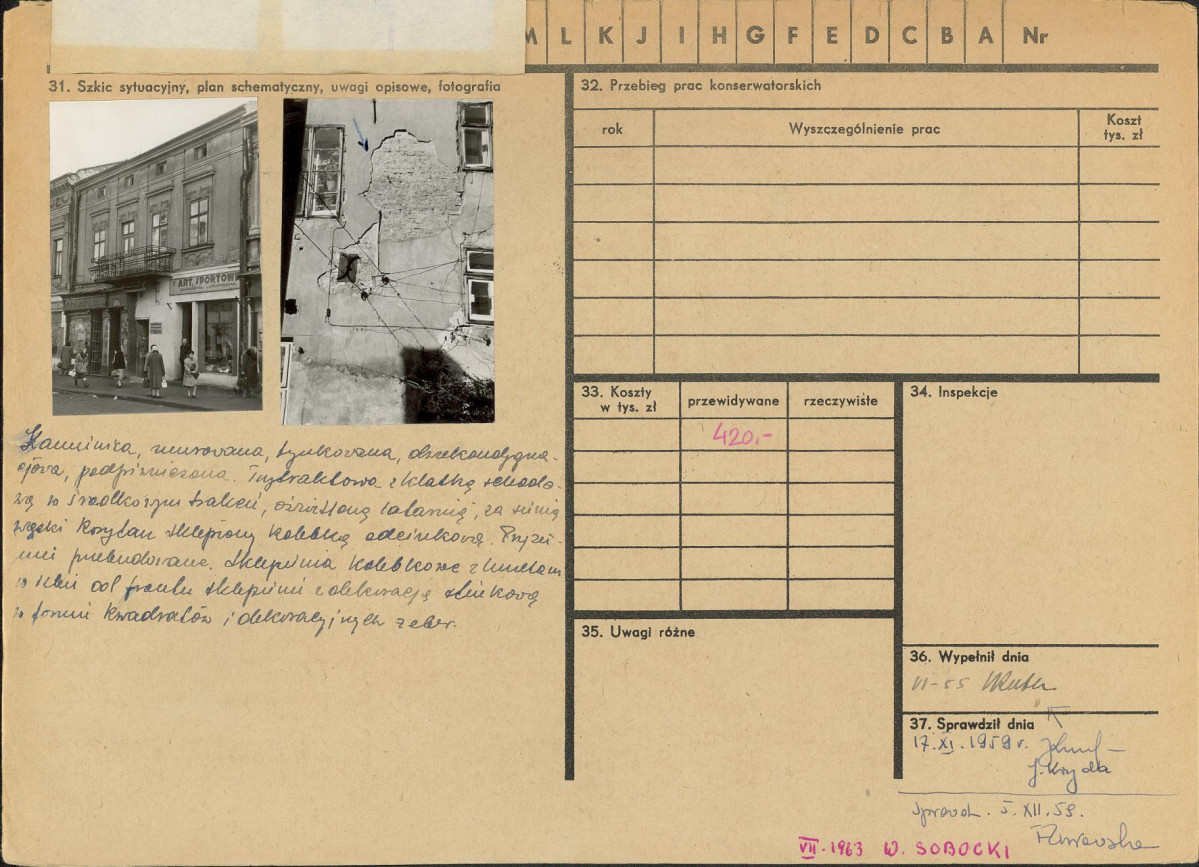 M L K J I H G F E D C B A Nr
31. Szkic sytuacyjny, plan schematyczny, uwagi opisowe, fotografia
ART. SPORTOW
Kamienica, murowana, tynkowana, dwukondygna-
cjowa, podpiwniczona. Trzytraktowa z klatką schodo-
wą w środkowym trakcie, oświetloną latarnią, za sienią
wąski korytarz sklepiony kolebką odcinkową. Przyzie-
mie przebudowane. Sklepienia kolebkowe z lunetami
w sieni od frontu sklepienie z dekoracją stiukową
w formie kwadratów i dekoracyjnych żeber.
32. Przebieg prac konserwatorskich
rok Wyszczególnienie prac Koszt
tys. zł
33. Koszty
w tys. zł przewidywane rzeczywiste
420.-
34. Inspekcje
35. Uwagi różne
36. Wypełnił dnia
VI-55
37. Sprawdził dnia
17.XI.1959 r.
J. Kryda
Sprawdz. 5.XII.59.
VII.1963 W. SOBOCKI